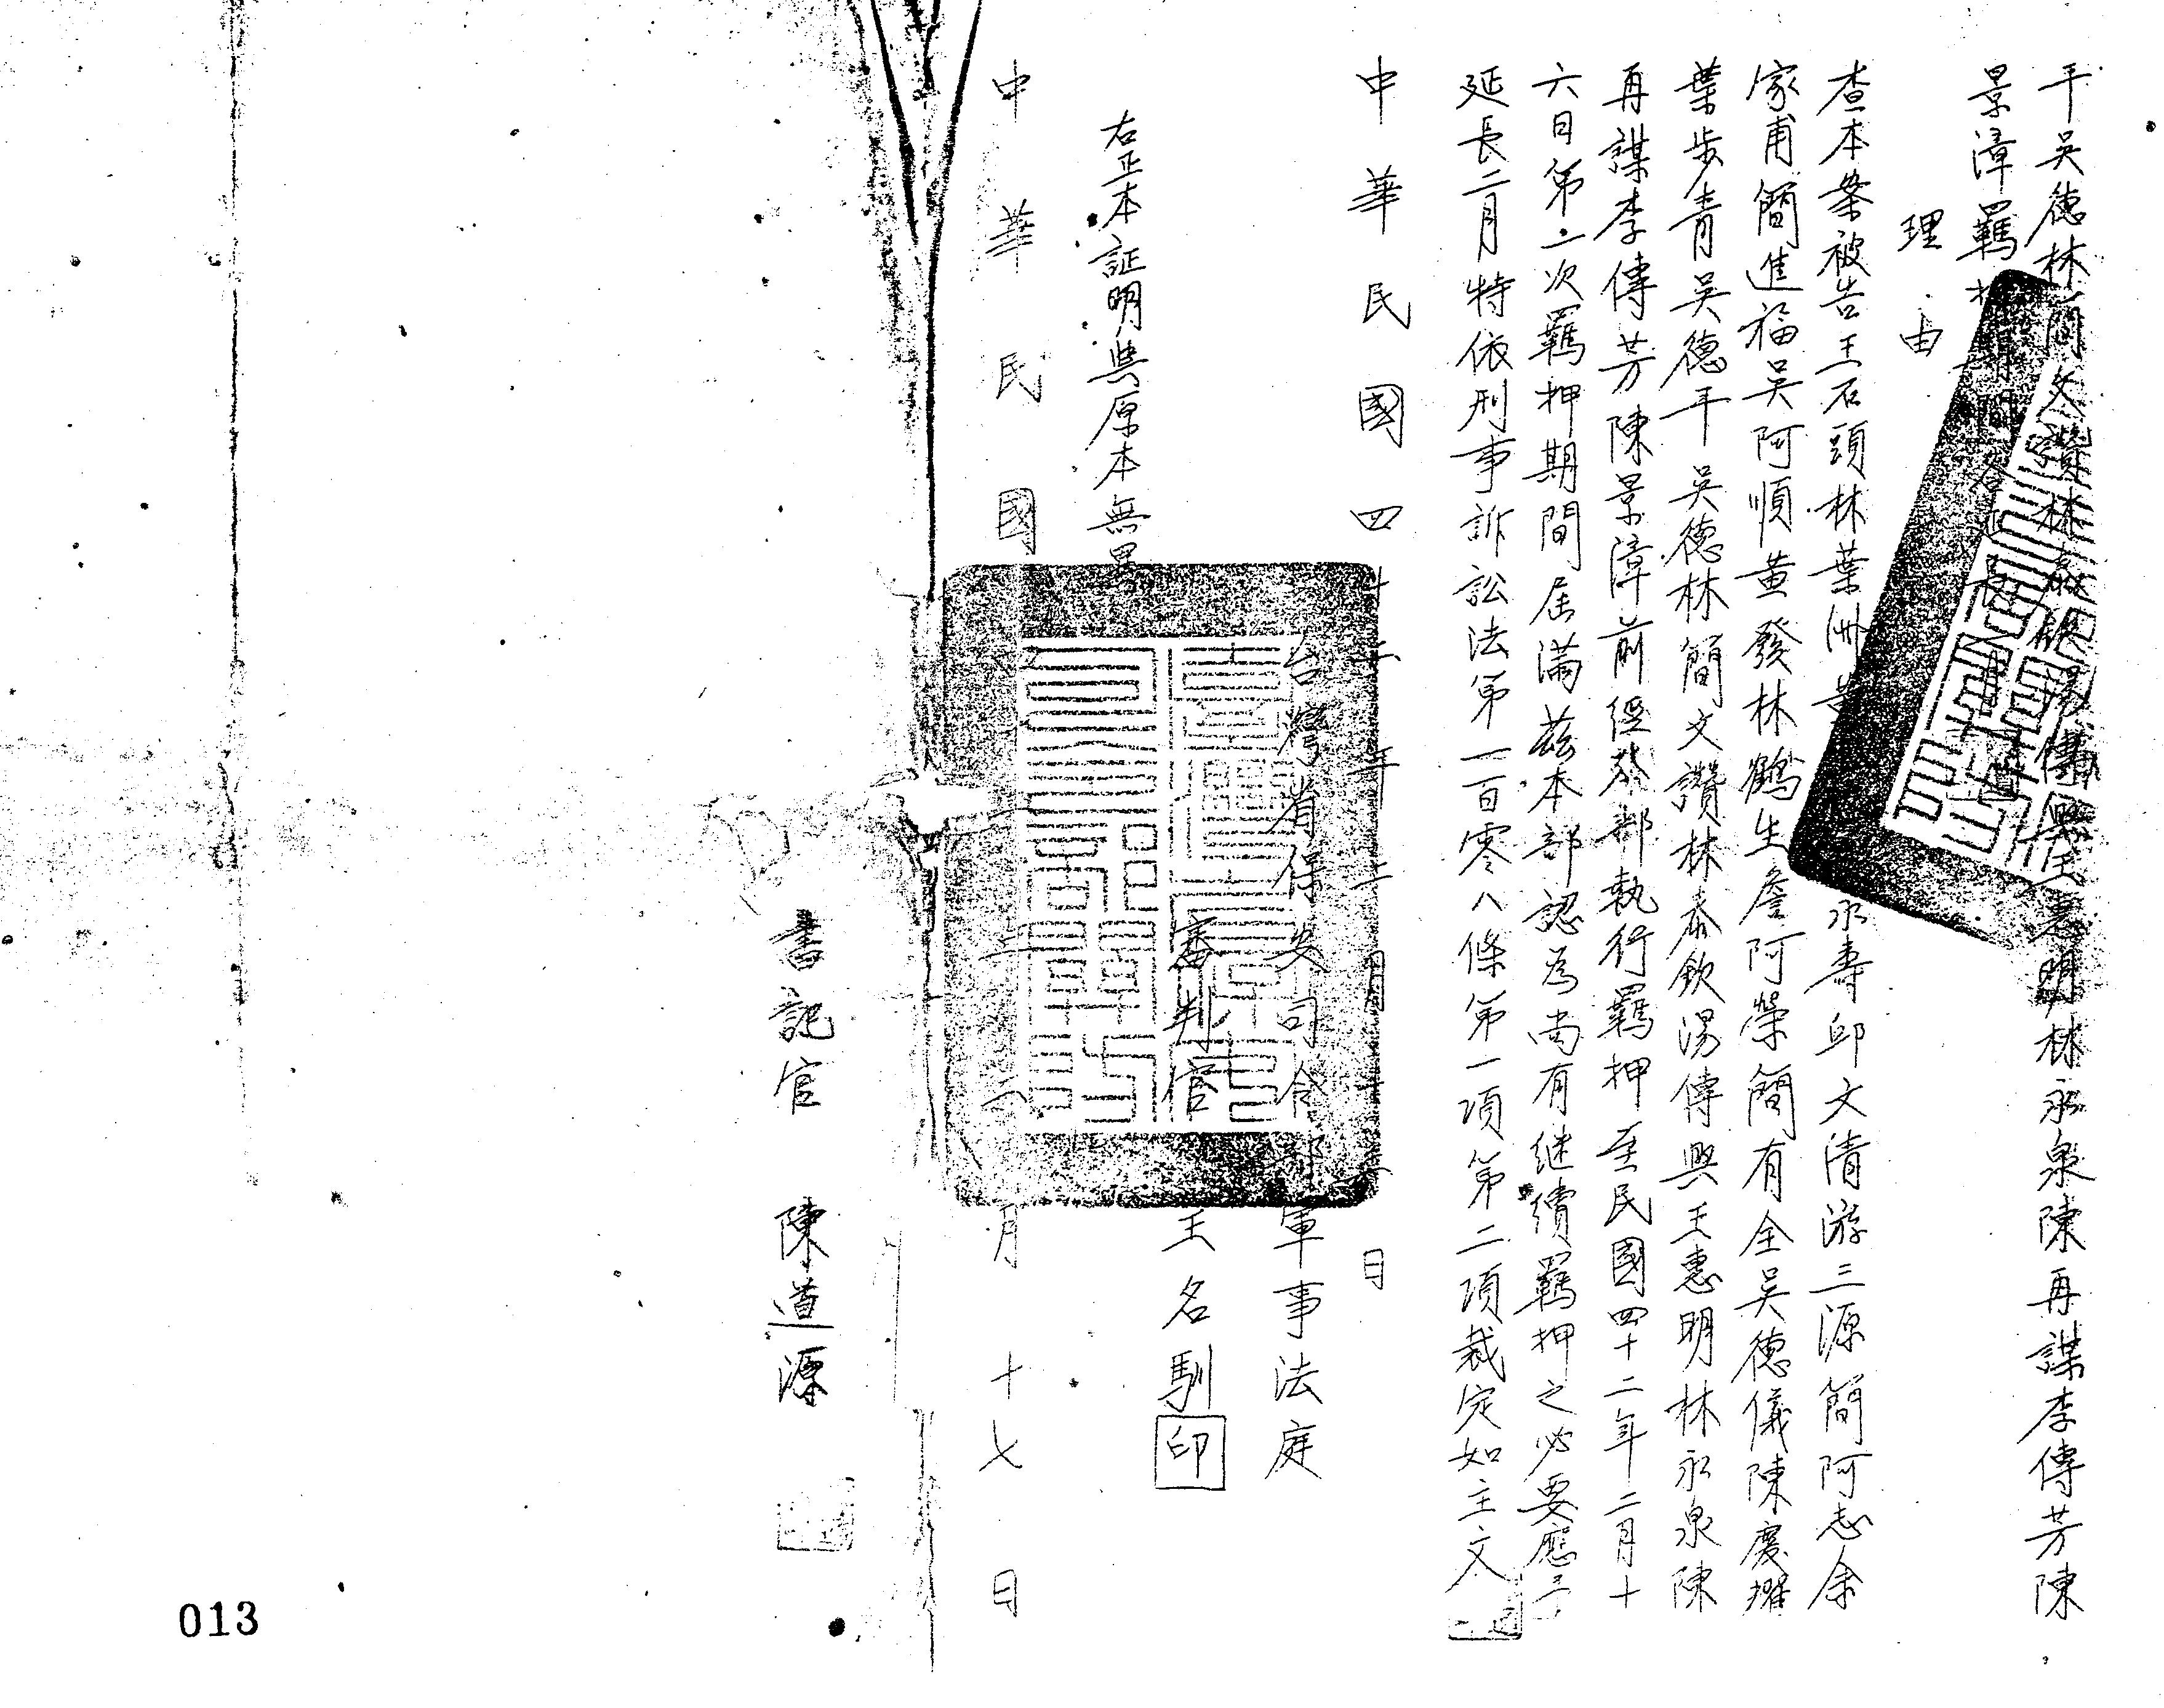 平吳德林簡文讚林泰欽湯傳興王惠明林永泉陳再謀李傳芳陳
景漳羈押期間各延長二月
理由
查本案被告王石頭林葉洲黃永壽邱文清游三源簡阿志余
家甫簡進福吳阿順黃發林鶴生詹阿榮簡有全吳德儀陳慶耀
葉步青吳德平吳德林簡文讚林泰欽湯傳興王惠明林永泉陳
再謀李傳芳陳景漳前經本部執行羈押至民國四十二年二月十
六日第二次羈押期間屆滿茲本部認為尚有继續羈押之必要應予
延長二月特依刑事訴訟法第一百零八條第一項第二項裁定如主文
中華民國四十二年二月十二日
台灣省保安司令部軍事法庭
審判官王名馴印
右正本証明與原本無異
中華民國 二月十七日
書記官 陳道源
013